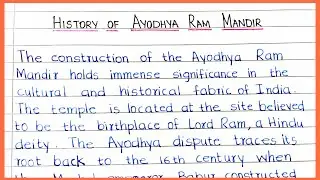 HISTORY OF AYODHYA RAM MANDIR
The construction of the Ayodhya Ram
Mandir holds immense significance in the
cultural and historical fabric of India.
The temple is located at the site believed
to be the birthplace of Lord Ram, a Hindu
deity. The Ayodhya dispute traces its
root back to the 16th century when
the Mughal emperor Babur constructed